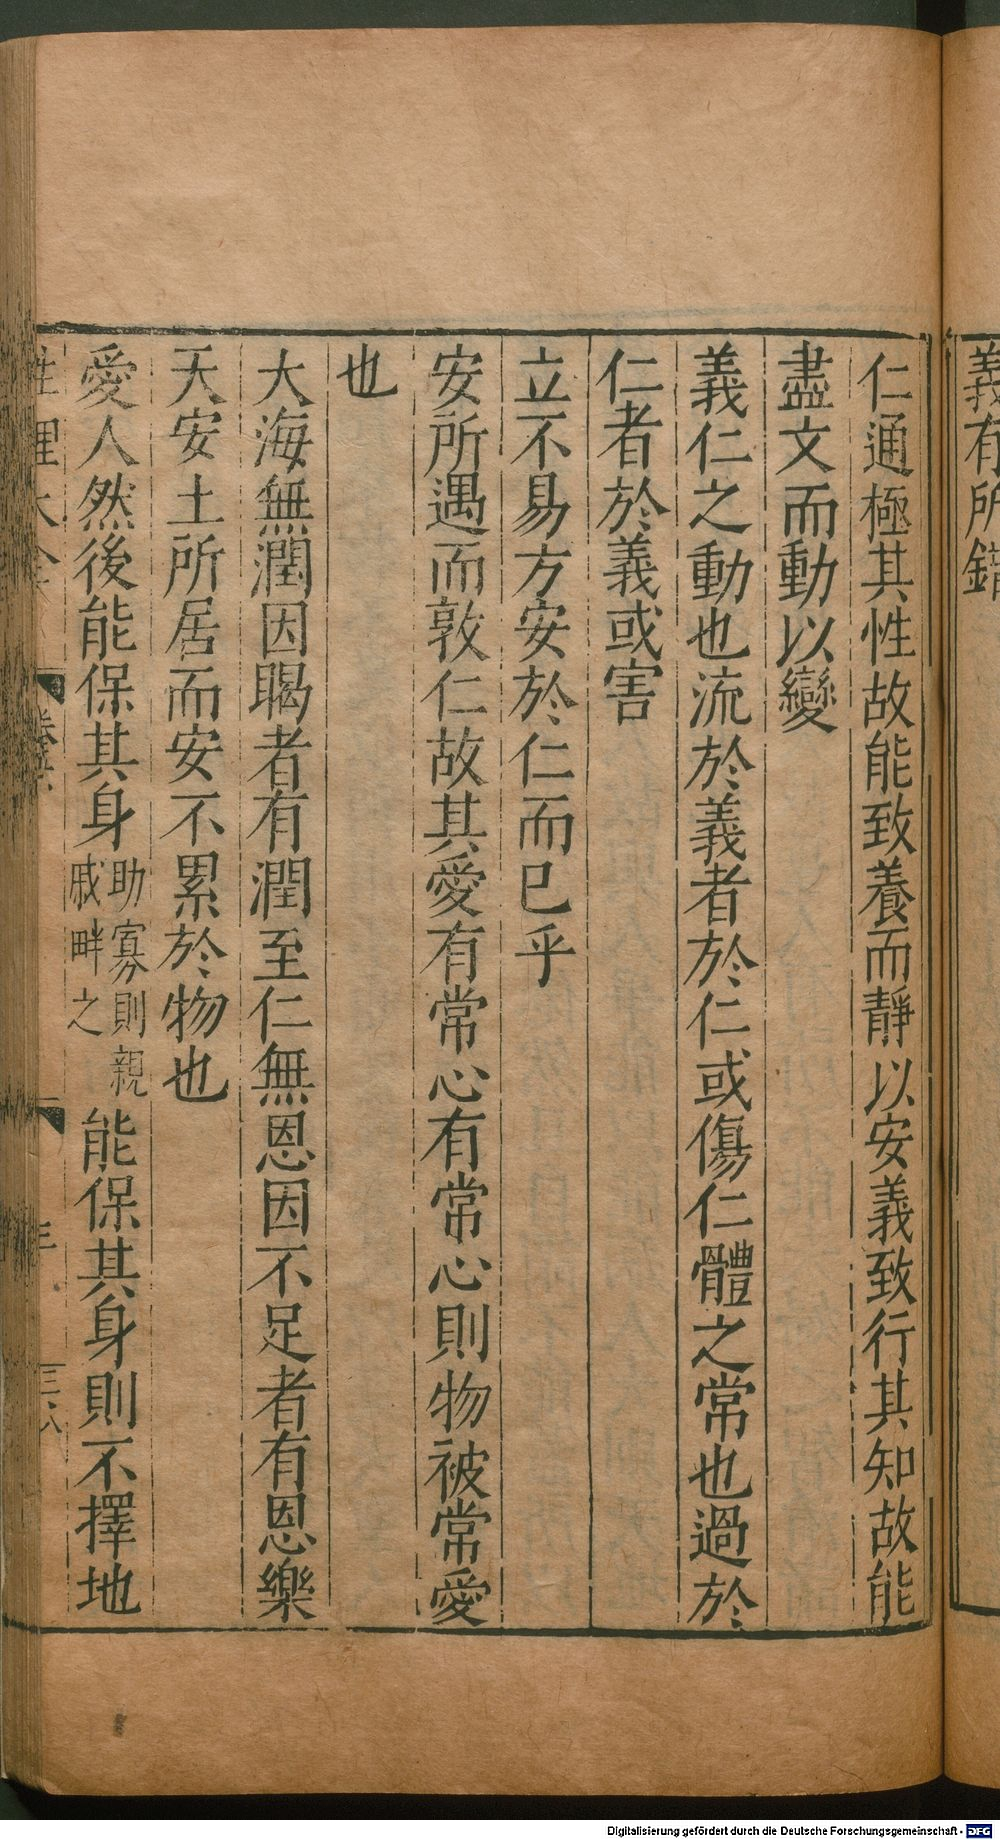 義有所錯
仁通極其性故能致養而靜以安義致行其知故能
盡文而動以變
義仁之動也流於義者於仁或傷仁體之常也過於
仁者於義或害
立不易方安於仁而已乎
安所遇而敦仁故其愛有常心有常心則物被常愛
也
大海無潤因暍者有潤至仁無恩因不足者有恩樂
天安土所居而安不累於物也
愛人然後能保其身助寡則親戚畔之能保其身則不擇地
性理大全
Digitalisierung gefördert durch die Deutsche Forschungsgemeinschaft - DFG